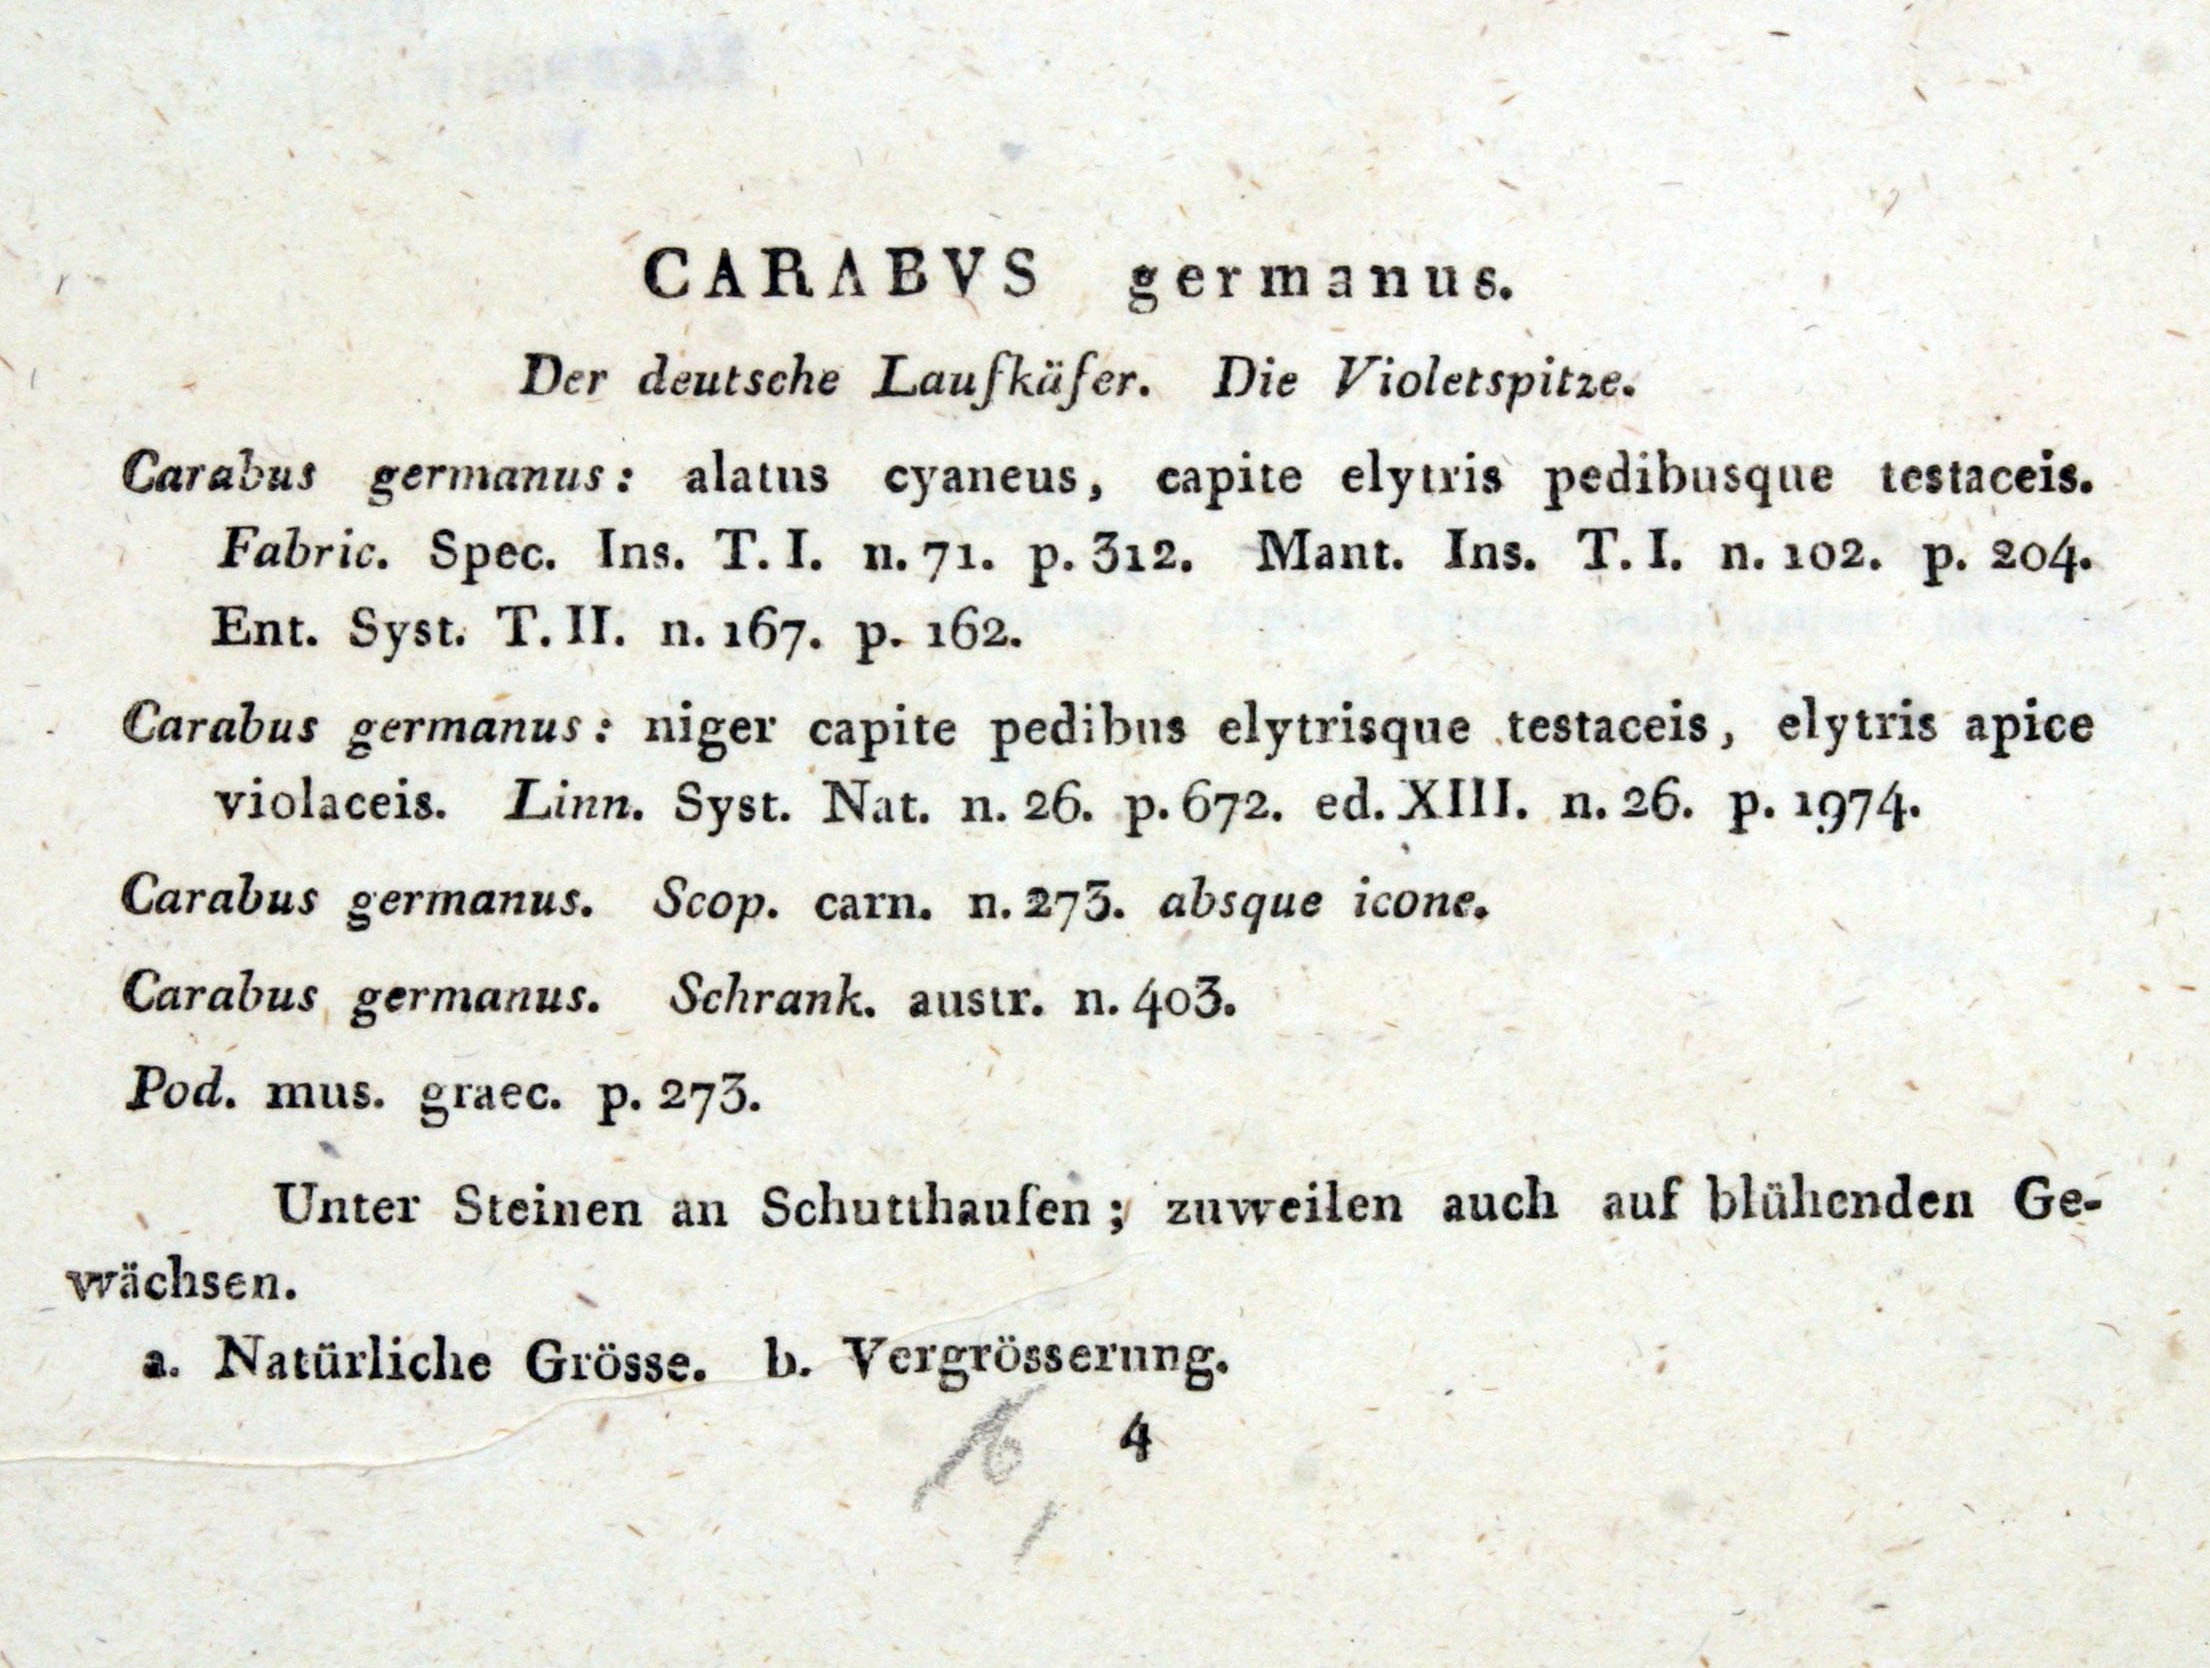 CARABVS germanus.
Der deutsche Laufkäfer. Die Violetspitze.
Carabus germanus: alatus cyaneus, capite elytris pedibusque testaceis.
Fabric. Spec. Ins. T. I. n. 71. p. 312. Mant. Ins. T. I. n. 102. p. 204.
Ent. Syst. T. II. n. 167. p. 162.
Carabus germanus: niger capite pedibus elytrisque testaceis, elytris apice
violaceis. Linn. Syst. Nat. n. 26. p. 672. ed. XIII. n. 26. p. 1974.
Carabus germanus. Scop. carn. n. 273. absque icone.
Carabus germanus. Schrank. austr. n. 403.
Pod. mus. graec. p. 273.
Unter Steinen an Schutthaufen; zuweilen auch auf blühenden Ge-
wächsen.
a. Natürliche Grösse. b. Vergrösserung.
4